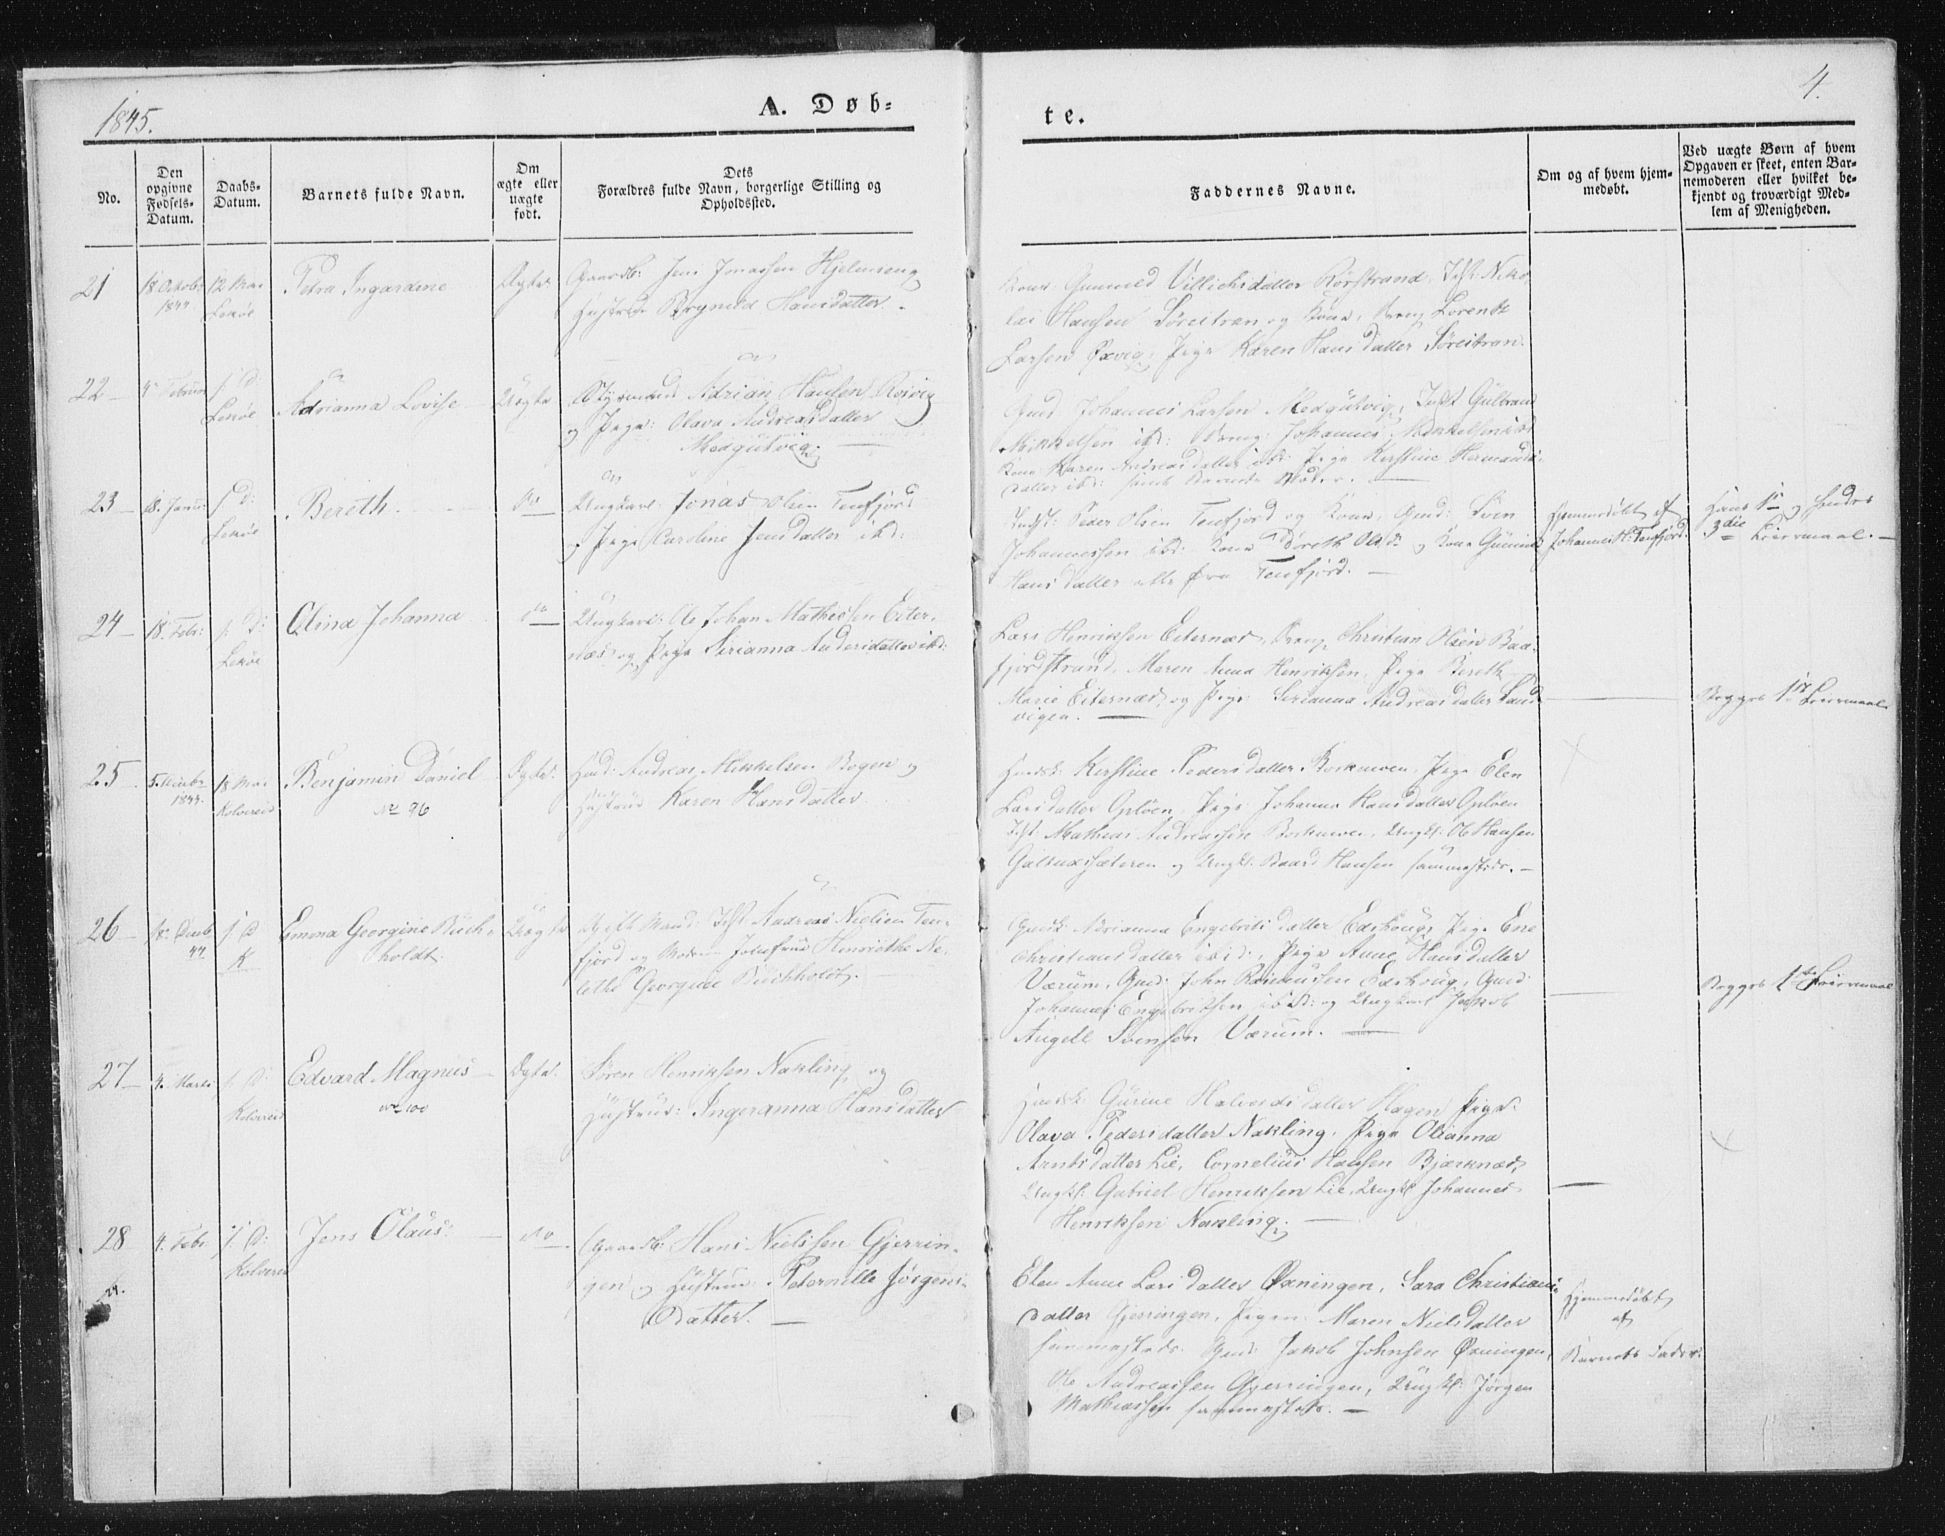 1845.
A. Døb=
te.
4.
No.
Den opgivne Fødsels-Datum.
Daabs-Datum.
Barnets fulde Navn.
Om ægte eller uægte født.
Dets Forældres fulde Navn, borgerlige Stilling og Opholdssted.
Faddernes Navne.
Om og af hvem hjem-
medøbt.
Ved uægte Børn af hvem
Opgaven er skeet, enten Bar-
nemoderen eller hvilket be-
kjendt og troværdigt Med-
lem af Menigheden.
21
18 Octob: 1844
12 Mai Lekøe
Petra Ingerdine
Ægte
Gaardb: Jens Jonassen Hjelmeng
Hustrue Hansdatter.
Kone Gunnild Rørstrand, Inst: Niko-
lai Hansen Søreitran og Kone, Dreng Lorents
Larsen Pige Karen Hansdatter Søreitran.
22
4 Februar
s. D: Lekøe
Adrianna Lovise
Uægte
Styrmand Adrian Hansen Rosvig
og Pige: Olava Andreasdatter
Medgutvig.
Gmd Johannes Larsen Medgutvig, Inst Gulbrand
Mikkelsen ibd: Dreng: Johannes Mikkelsen ibd
Kone Karen Andreasdatter ibd: Pige Kerstine Hermands-
datter ibd: samt Barnets Moder.
23
18. Januar
s D: Lekøe
Bereth.
do
Ungkarl Jonas Olsen Terfjord
og Pige Caroline Jensdatter ibd:
Inst: Peder Olsen Terfjord og Kone, Gmd: Sven
Johannessen ibd: Kone Doreth Olsd: og Kone
Hansdatter alle fra Terfjord.
Hjemmedøbt af
Johannes H: Terfjord.
Hans 1ste og hendes
3die Leiermaal.
24
18. Febr:
s. D: Lekøe
Olina Johanna
do
Ungkarl: Ole Johan Mathiesen Eiter-
næs og Pige Serianna Andersdatter ibd:
Lars Henriksen Eiternæs, Dreng Christian Olsen Baa-
fjordstrand, Maren Anna Henriksen, Pige Bereth
Marie Eiternæs, og Pige Serianna Andreasdatter Sand-
vigen.
Begges 1ste Leiermaal
25
5. 1844.
18 Mai Kolvereid
Benjamin Daniel
No 96
Ægte.
Andreas Mikkelsen Bogen og
Hustrue Karen Hansdatter
Kerstine Pedersdatter Pige Elen
Larsdatter Opløen, Pige Johanna Hansdatter Opløen
Inst: Mathias Andreassen Ungk: Ole Hansen
og Ungk: Baard Hansen sammesteds.
26
Decemb 44
s D K
Emma Georgine Buch-
holdt.
Uægte
Gift Mand: Inst Andreas Nielsen Ter-
fjord og Moder Jomfrue Henriethe Ne-
lethe Georgine Buchholdt.
Adrianna Engebritsdatter Pige Ene
Christiansdatter ibid:, Pige Anne Hansdatter
Værum, Gmd: John Rasmussen Gmd
Johannes Engebriktsen ibd: og Ungkarl Jakob
Angell Svensen Værum.
Begges 1ste Leiermaal
27
4. Marts
s. D: Kolvereid
Edvard Magnus
No 100
Ægte.
Søren Henriksen Nakling og
Hustrue: Ingeranna Hansdatter
Gurine Halvordsdatter Hagen Pige:
Olava Pedersdatter Nakling, Pige Olianna
Arntsdatter Lie, Cornelius Hansen Bjærknæs,
Ungk: Gabriel Henriksen Lie, Ungk Johannes
Henriksen Nakling.
28
4. Febr.
s. D: Kolvereid
Jens Olaus
do
Gaardb: Hans Nielssen Gjerrin-
gen og Hustrue Peternelle Jørgens-
Datter.
Elen Anne Larsdatter Øxningen, Sara Christians-
datter Gjerringen, Pigen: Maren Nielsdatter
sammesteds. Gmd: Jakob Johnsen Øxningen,
Ole Andreassen Gjerringen, Ungk: Jørgen
Mathiassen sammesteds.
Hjemmedøbt
af
Barnets Fader.